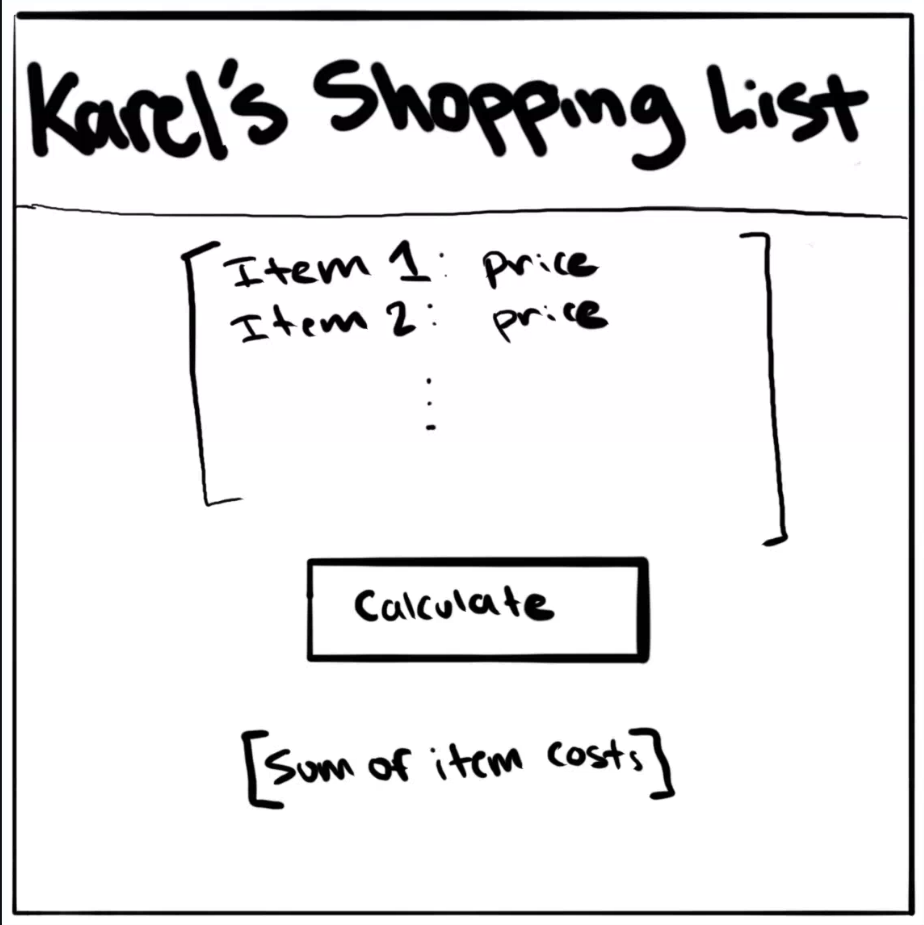 Karel's Shopping List
Item 1: price
Item 2: price
Calculate
[Sum of item costs]